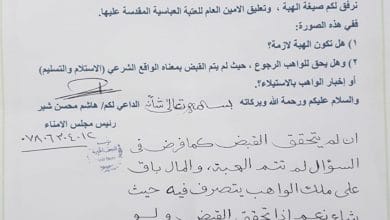 نرفق لكم صيغة الهبة ، وتعليق الامين العام للعتبة العباسية المقدسة عليها.
ففي هذه الصورة:
١) هل تكون الهبة لازمة؟
٢) وهل يحق للواهب الرجوع ، حيث لم يتم القبض بمعناه الواقع الشرعي (الاستلام والتسليم)
أو إخبار الواهب بالاستيلاء؟
والسلام عليكم ورحمة الله وبركاته
بسمه تعالى شأنه
الداعي لكم/ هاشم محسن شبر
رئيس مجلس الامناء
٠٧٨٠٦٣٠٤٠١٢
ان لم يتحقق القبض كما فرض في
السؤال لم تتم الهبة، والمال باق
على ملك الواهب يتصرف فيه حيث
شاء نعم اذا تحقق القبض و لو